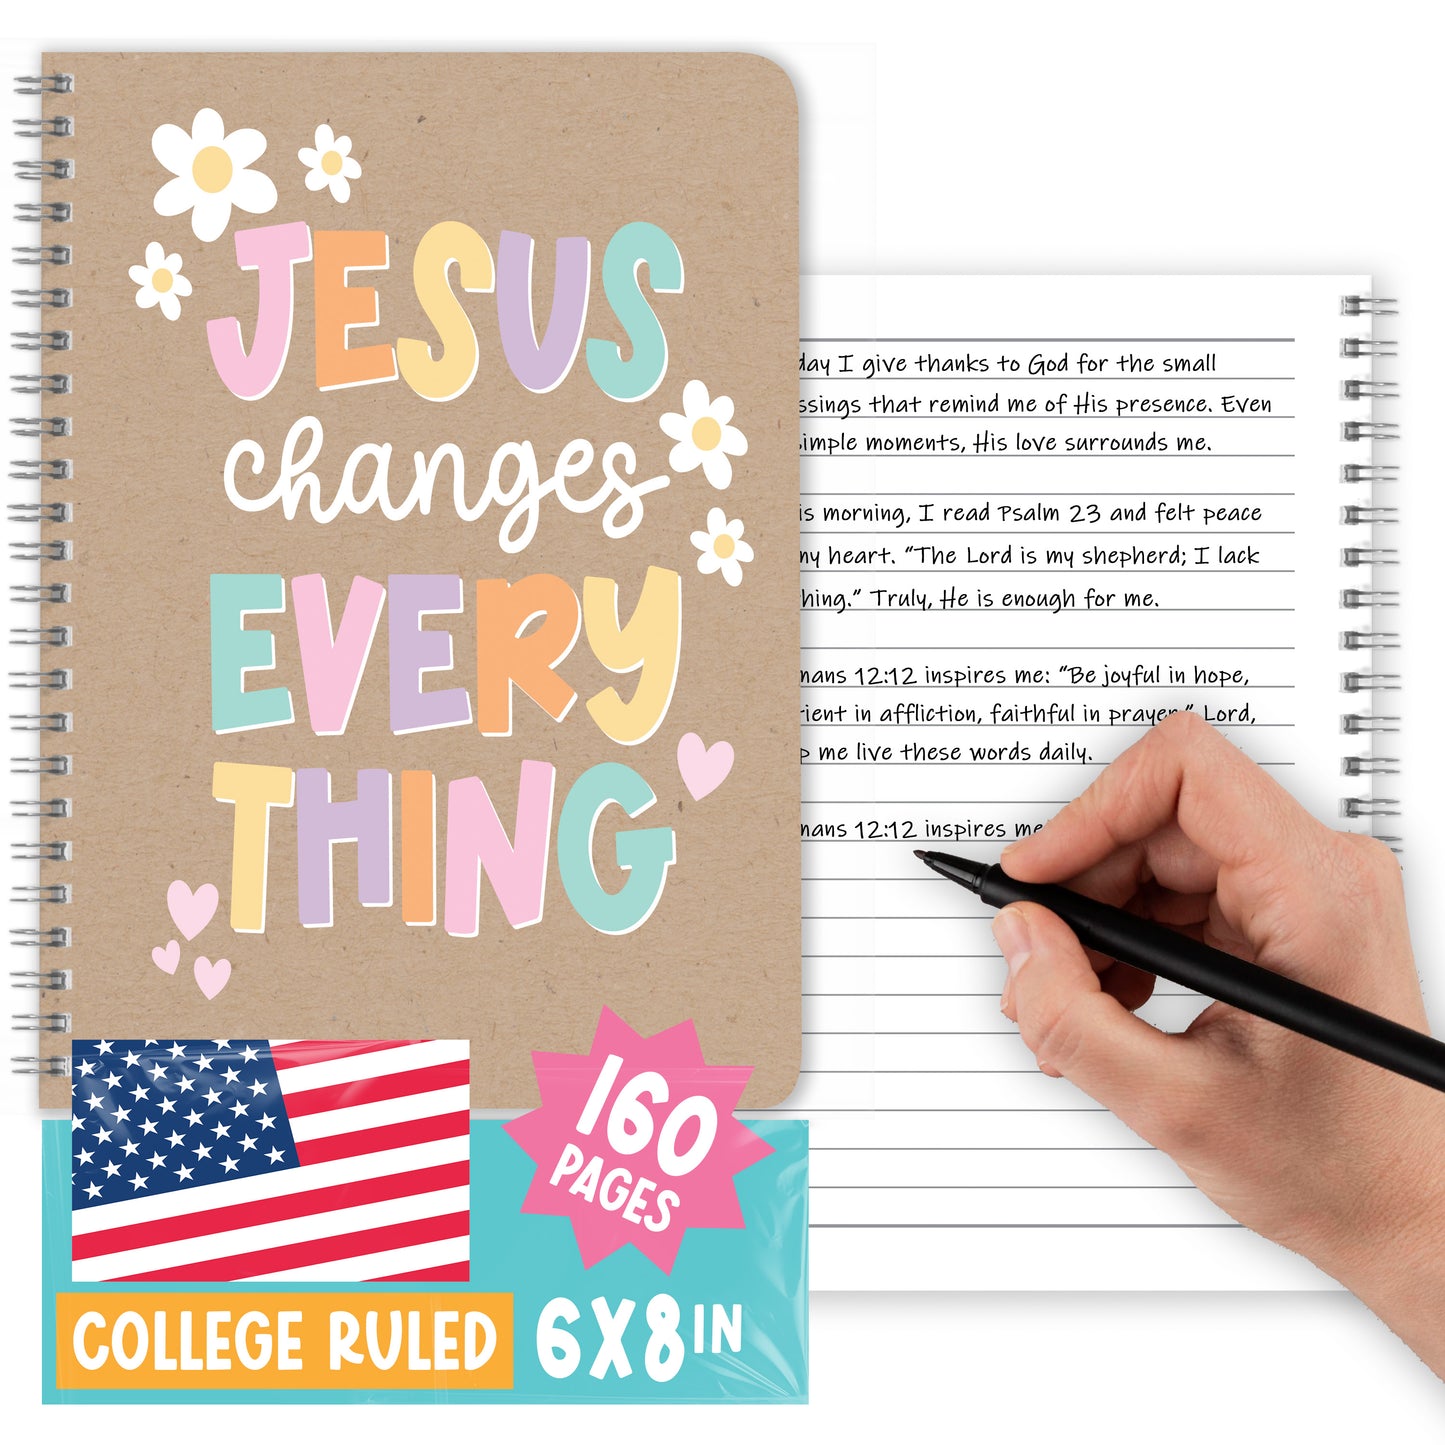 JESUS
changes
EVERY
THING
160
PAGES
COLLEGE RULED
6X8 IN
day I give thanks to God for the small
ssings that remind me of His presence. Even
simple moments, His love surrounds me.
is morning, I read Psalm 23 and felt peace
my heart. “The Lord is my shepherd; I lack
hing.” Truly, He is enough for me.
mans 12:12 inspires me: “Be joyful in hope,
tient in affliction, faithful in prayer.” Lord,
p me live these words daily.
mans 12:12 inspires me